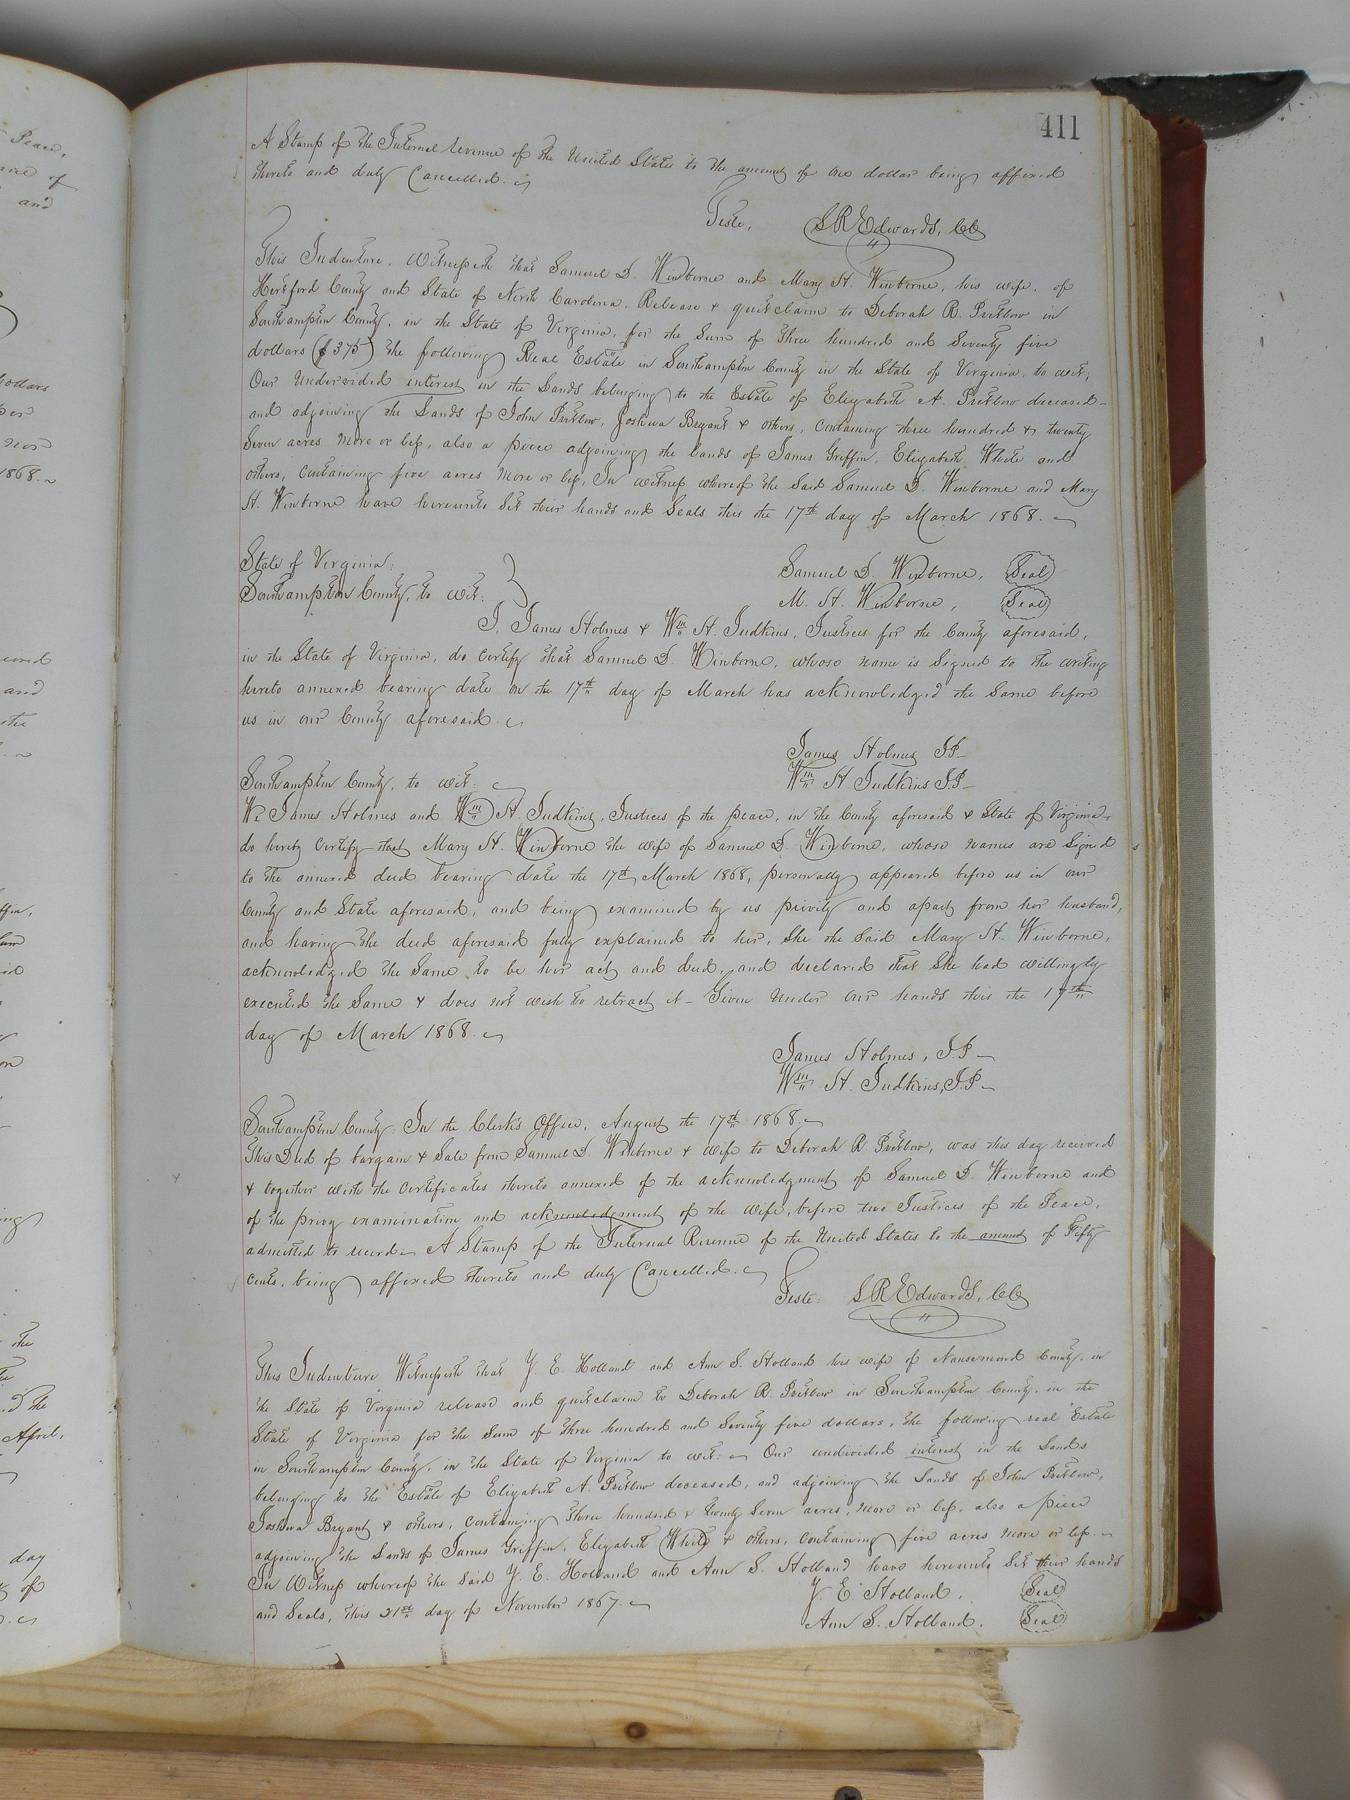 411
A Stamp of the Internal revenue of the United States to the amount of one dollar being affixed
thereto and duly Cancelled.
Teste, L R Edwards, CC
This Indenture, Witnesseth that Samuel D. Winborne and Mary H. Winborne, his wife, of
Hertford County and State of North Carolina, Release & quitclaim to Deborah R. Pretlow in
Southampton County, in the State of Virginia, for the Sum of three hundred and Seventy five
dollars ($375) the following Real Estate in Southampton County in the State of Virginia, to wit;
Our Undivided interest in the Lands belonging to the Estate of Elizabeth A. Pretlow deceased
and adjoining the Lands of John Pretlow, Joshua Bryant & others, Containing three hundred & twenty
Seven acres more or less, also a piece adjoining the lands of James Griffin, Elizabeth White and
others, Containing five acres more or less, In witness whereof the Said Samuel D. Winborne and Mary
H. Winborne have hereunto Set their hands and Seals this the 17th day of March 1868.
State of Virginia: Samuel D. Winborne, Seal
Southampton County, to wit: M. H. Winborne, Seal
I, James Holmes & Wm H. Judkins, Justices for the County aforesaid,
in the State of Virginia, do certify that Samuel D. Winborne, whose name is Signed to the writing
hereto annexed bearing date on the 17th day of March has acknowledged the Same before
us in our County aforesaid.
James Holmes J.P.
Southampton County, to wit: Wm H. Judkins J.P.
We James Holmes and Wm H. Judkins, Justices of the peace, in the County aforesaid & State of Virginia,
do hereby Certify that Mary H. Winborne the wife of Samuel D. Winborne, whose names are Signed
to the annexed deed bearing date the 17th March 1868, personally appeared before us in our
County and State aforesaid, and being examined by us privily and apart from her husband,
and having the deed aforesaid fully explained to her, She the Said Mary H. Winborne,
acknowledged the Same to be her act and deed, and declared that She had willingly
executed the Same & does not wish to retract it – Given Under Our hands this the 17th
day of March 1868.
James Holmes, J.P.
Wm H. Judkins, J.P.
Southampton County: In the Clerk's Office, August the 17th 1868.
This Deed of bargain & Sale from Samuel D. Winborne & wife to Deborah R. Pretlow, was this day received
& together with the Certificates thereto annexed of the acknowledgment of Samuel D. Winborne and
of the privy examination and acknowledgment of the wife, before two Justices of the Peace,
admitted to record – A Stamp of the Internal Revenue of the United States to the amount of Fifty
Cents, being affixed thereto and duly Cancelled.
Teste: L R Edwards, CC
This Indenture Witnesseth that Y. E. Holland and Ann S. Holland his wife of Nansemond County, in
the State of Virginia release and quitclaim to Deborah R. Pretlow in Southampton County, in the
State of Virginia for the Sum of three hundred and Seventy five dollars, the following real Estate
in Southampton County, in the State of Virginia to wit: Our undivided interest in the Lands
belonging to the Estate of Elizabeth A. Pretlow deceased, and adjoining the Lands of John Pretlow,
Joshua Bryant & others, Containing three hundred & twenty Seven acres, more or less, also a piece
adjoining the Lands of James Griffin, Elizabeth White & others, containing five acres more or less.
In Witness whereof the Said Y. E. Holland and Ann S. Holland have hereunto Set their hands
and Seals, this 21st day of November 1867. Y. E. Holland, Seal
Ann S. Holland. Seal